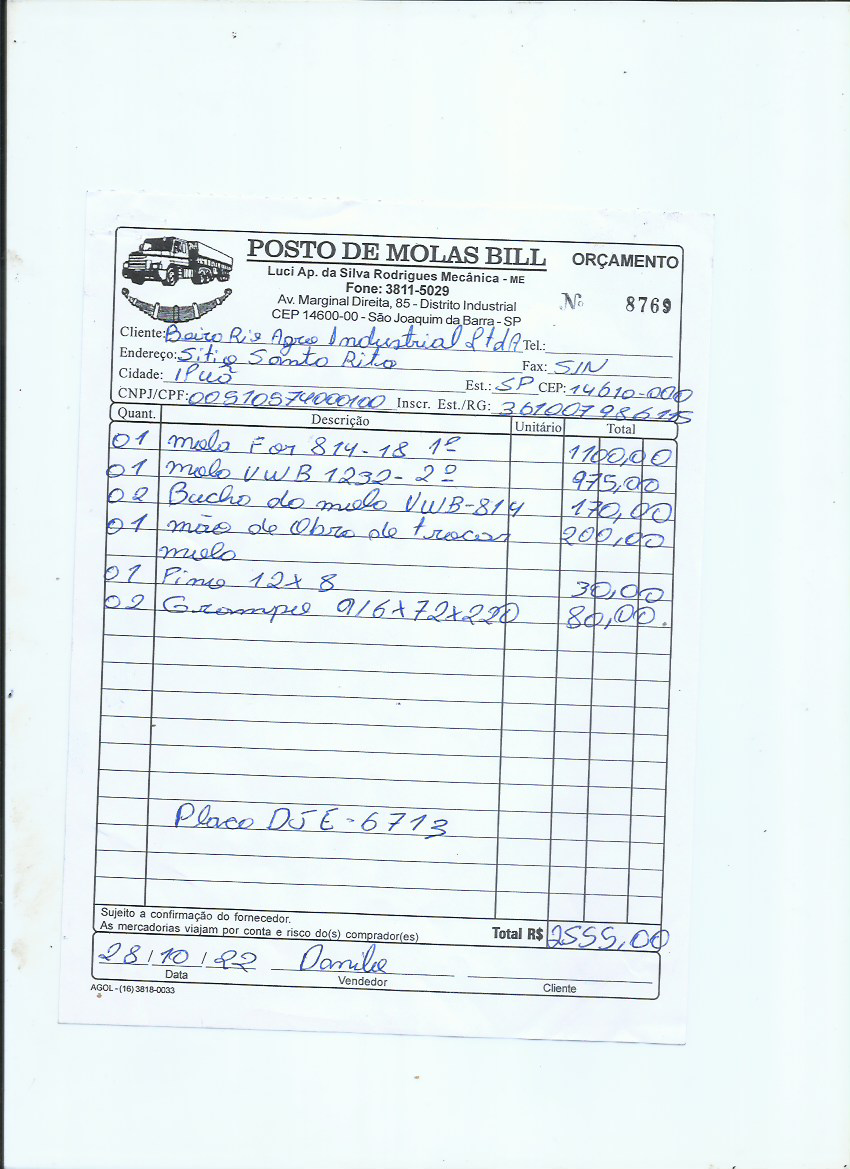 POSTO DE MOLAS BILL
ORÇAMENTO
Luci Ap. da Silva Rodrigues Mecânica - ME
Fone: 3811-5029
Av. Marginal Direita, 85 - Distrito Industrial
CEP 14600-00 - São Joaquim da Barra - SP
Nº 8769
Cliente: Beira Rio Agro Industrial Ltda Tel.:
Endereço: Sitio Santa Rita Fax: S/N
Cidade: Ipuã Est.: SP CEP: 14610-000
CNPJ/CPF: 00510574000100 Inscr. Est./RG: 361007986115
Quant. Descrição Unitário Total
01 mola For 814-18 1ª 1100,00
01 mola VWB 1232-2ª 975,00
02 Bucha da mola VWB-814 170,00
01 mão de Obra de trocar 200,00
mola
01 Pino 12x8 30,00
02 Grampo 9/6x72x220 80,00.
Placa DJE-6713
Sujeito a confirmação do fornecedor.
As mercadorias viajam por conta e risco do(s) comprador(es)
Total R$ 2555,00
28/10/22 Danilo
Data Vendedor Cliente
AGOL - (16) 3818-0033